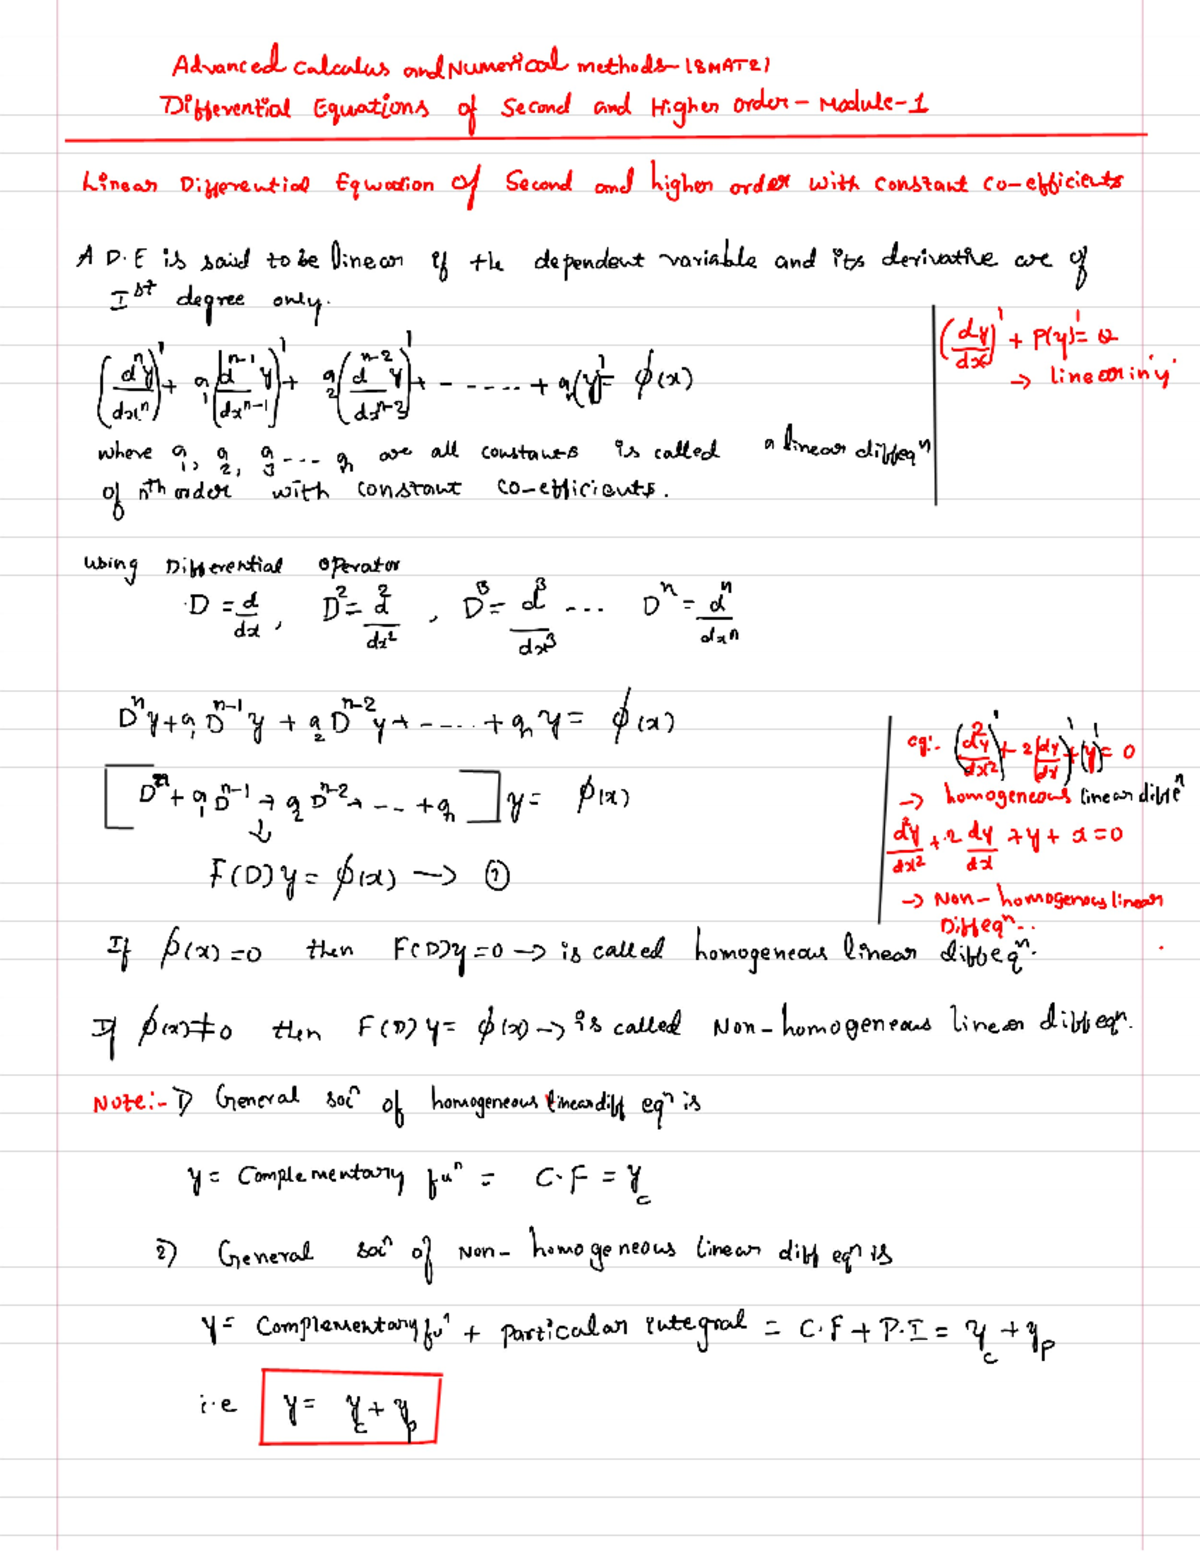 Advanced Calculus and Numerical methods - 18MAT21
Differential Equations of Second and Higher order - Module-1
Linear Differential Equation of Second and higher order with constant co-efficients
A D.E is said to be linear if the dependent variable and its derivative are of
Ist degree only.
(dy/dx)¹ + P(y)¹ = Q
→ linear in 'y'
(dⁿy/dxⁿ)¹ + a₁(dⁿ⁻¹y/dxⁿ⁻¹)¹ + a₂(dⁿ⁻²y/dxⁿ⁻²)¹ + - ---- + aₙ(y)¹ = ϕ(x)
where a₁, a₂, a₃ --- aₙ are all constants is called a linear diff eqⁿ
of nth order with constant co-efficients.
Using Differential operator
D = d/dx, D² = d²/dx², D³ = d³/dx³ ... Dⁿ = dⁿ/dxⁿ
Dⁿy + a₁Dⁿ⁻¹y + a₂Dⁿ⁻²y + ----- + aₙy = ϕ(x)
[Dⁿ + a₁Dⁿ⁻¹ + a₂Dⁿ⁻² + - -- + aₙ]y = ϕ(x)
↓
F(D)y = ϕ(x) → ①
eg:- (d²y/dx²)¹ + 2(dy/dx)¹ + (y)¹ = 0
→ homogeneous linear diff eⁿ
d²y/dx² + 2 dy/dx + y + x = 0
→ Non-homogenous linear
Diff eqⁿ..
If ϕ(x) = 0 then F(D)y = 0 → is called homogeneous linear diff eqⁿ.
If ϕ(x) ≠ 0 then F(D)y = ϕ(x) → is called Non-homogeneous linear diff eqn.
Note:- 1) General solⁿ of homogeneous linear diff eqⁿ is
y = Complementary fuⁿ = C.F = y_c
2) General solⁿ of Non-homogeneous linear diff eqⁿ is
y = Complementary fuⁿ + Particular integral = C.F + P.I = y_c + y_p
i.e y = y_c + y_p